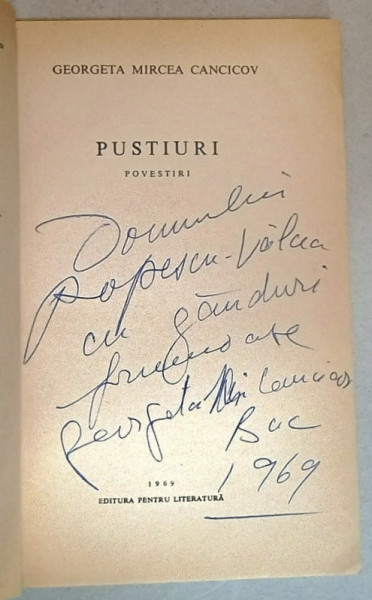 GEORGETA MIRCEA CANCICOV
PUSTIURI
POVESTIRI
Domnului
Popescu-Vâlcea
cu gânduri
frumoase
Georgeta M. Cancicov
Buc
1969
1969
EDITURA PENTRU LITERATURĂ